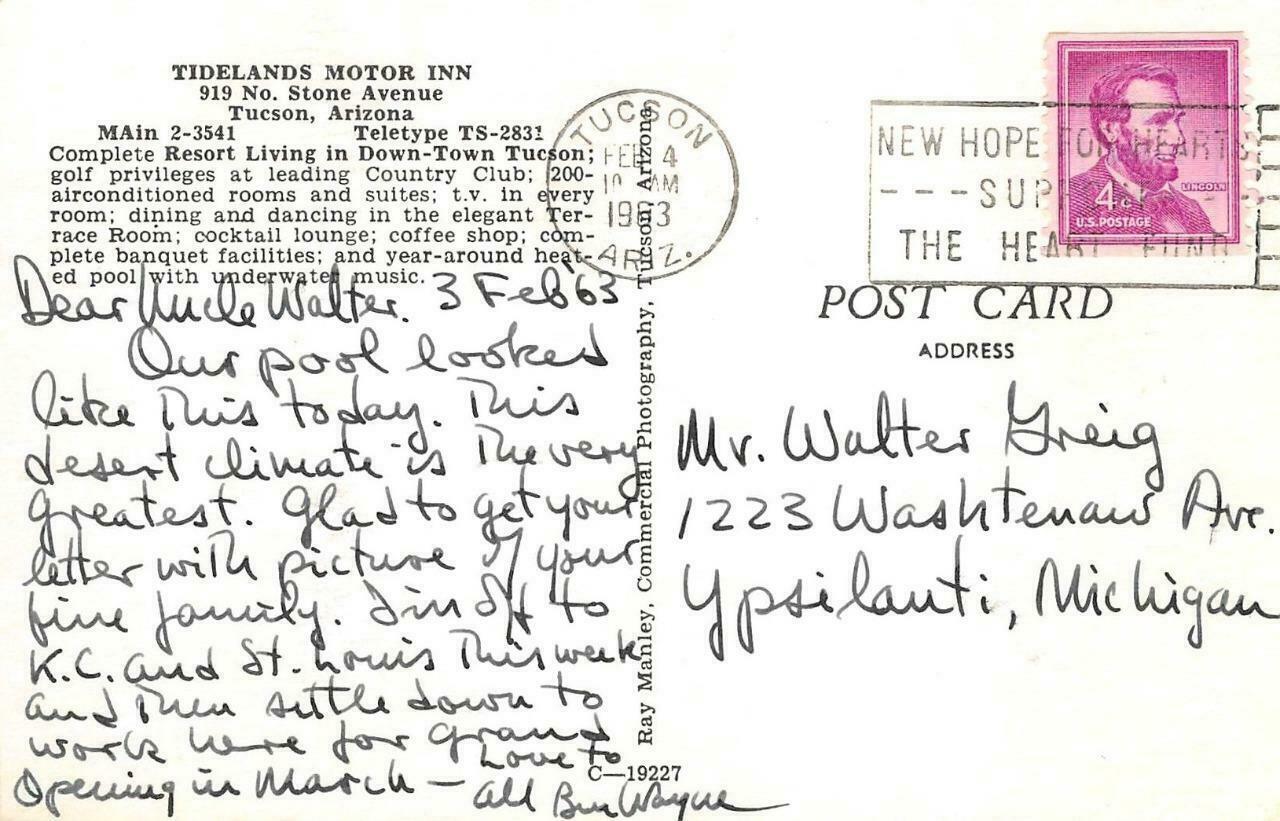 TIDELANDS MOTOR INN
919 No. Stone Avenue
Tucson, Arizona
MAin 2-3541 Teletype TS-2831
Complete Resort Living in Down-Town Tucson;
golf privileges at leading Country Club; 200-
airconditioned rooms and suites; t.v. in every
room; dining and dancing in the elegant Ter-
race Room; cocktail lounge; coffee shop; com-
plete banquet facilities; and year-around heat-
ed pool with underwater music.
Dear Uncle Walter. 3 Feb '63
Our pool looked
like this today. This
desert climate is the very
greatest. Glad to get your
letter with picture of your
fine family. I'm off to
K.C. and St. Louis this week
and then settle down to
work here for grand
Opening in March —
Love to
all Ben Wayne
Ray Manley, Commercial Photography, Tucson, Arizona
C—19227
TUCSON
FEB 4
AM
1963
ARIZ.
NEW HOPE FOR HEARTS
---SUPPORT---
THE HEART FUND
LINCOLN
4¢
U.S. POSTAGE
POST CARD
ADDRESS
Mr. Walter Greig
1223 Washtenaw Ave.
Ypsilanti, Michigan